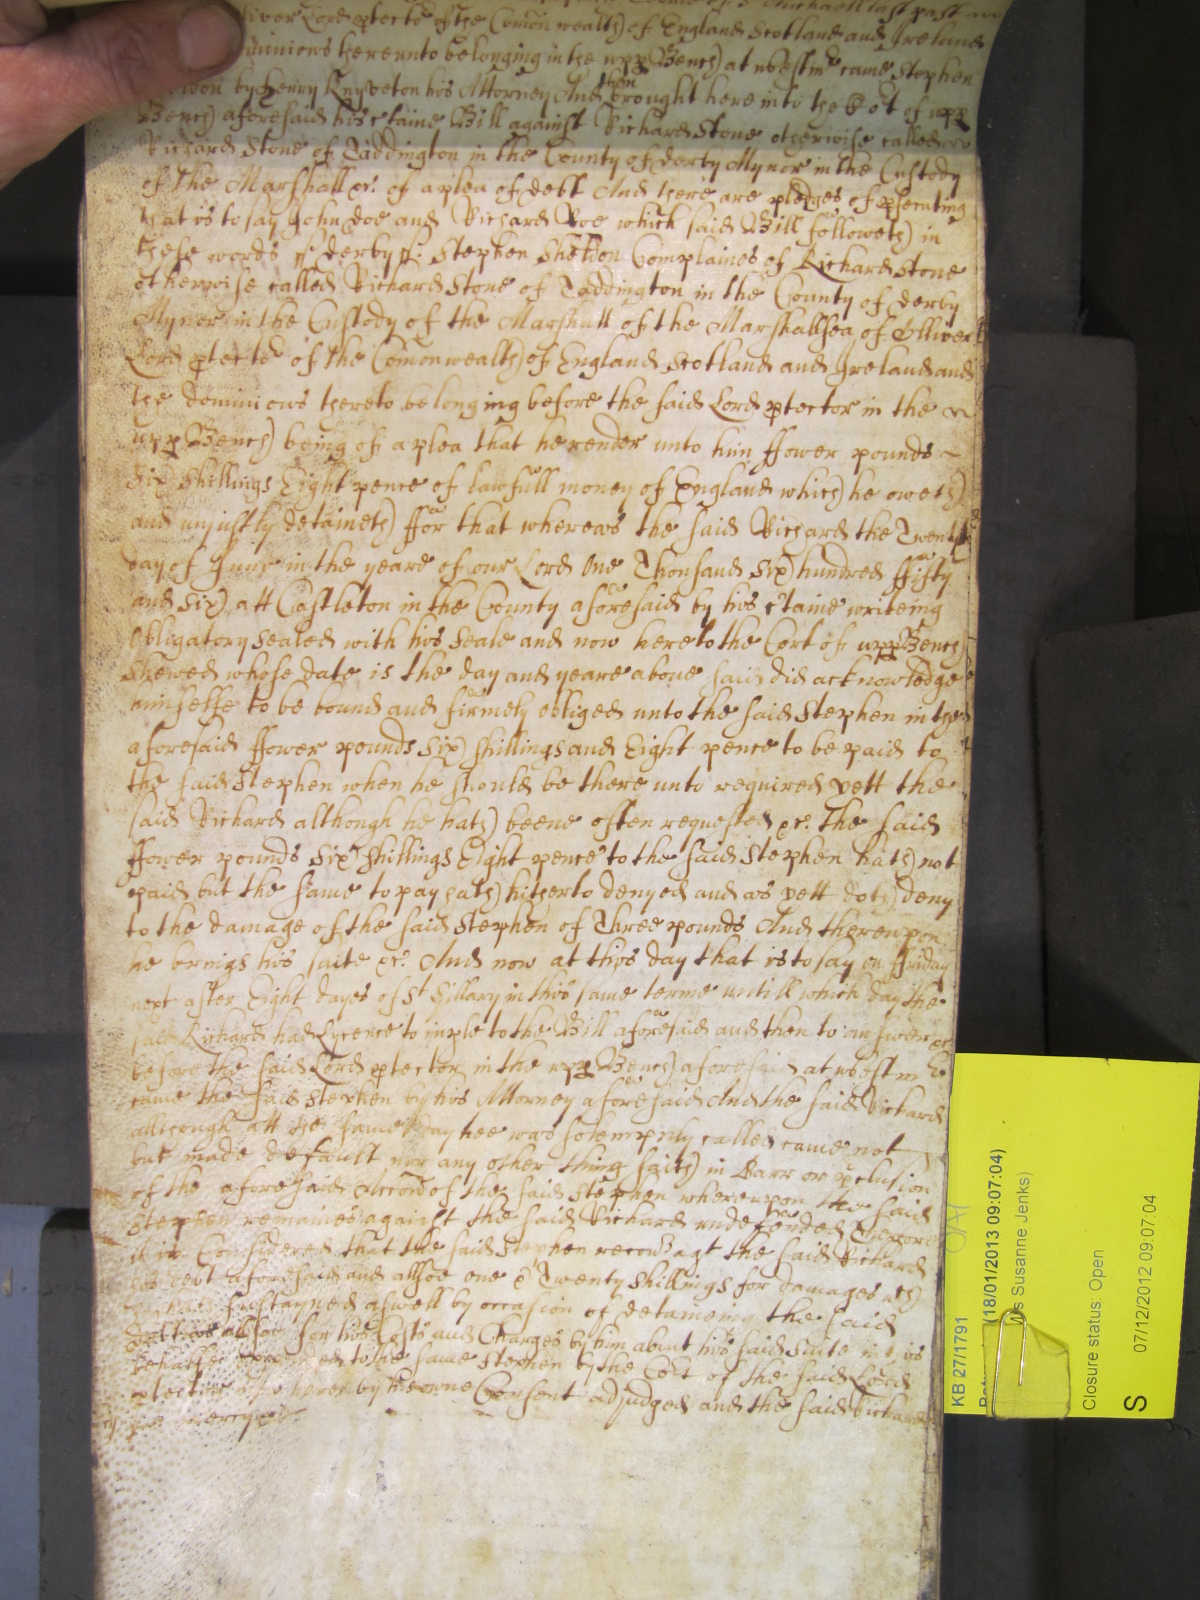 Michaell last past
Oliver Lord ptector of the Comonwealth of England Scotland and Ireland
dominions thereunto belonging in the upp Bench at westmr came Stephen
by henry Knyveton his Attorney And then brought here into the Cort of upp
Bench aforesaid his c'taine Bill against Richard Stone otherwise called
Richard Stone of Taddington in the County of derby Myner in the Custody
of the Marshall &c. of a plea of debt And there are pledges of psecuting
that is to say John doe and Richard Roe which said Bill followeth in
these words ss derby ss: Stephen Sheldon Complaines of Richard Stone
otherwise called Richard Stone of Taddington in the County of derby
Myner in the Custody of the Marshall of the Marshallsea of Olliver
Lord ptector of the Comonwealth of England Scotland and Ireland and
the dominions thereto belonging before the said Lord ptector in the
upp Bench being of a plea that he render unto him ffower pounds
Six shillings Eight pence of lawfull money of England which he oweth
and unjustly detaineth ffor that whereas the said Richard the Twenty
day of June in the yeare of our Lord One Thousand Six hundred ffifty
and Six att Castleton in the County aforesaid by his c'taine writeing
Obligatory Sealed with his Seale and now here to the Cort of upp Bench
Shewed whose date is the day and yeare above said did acknowledge
himselfe to be bound and firmely obliged unto the said Stephen in the
aforesaid ffower pounds Six shillings and Eight pence to be paid to
the said Stephen when he should be there unto required yett the
said Richard although he hath beene often requested &c. the said
ffower pounds Six shillings Eight pence to the said Stephen hath not
paid but the same to pay hath hitherto denyed and as yett doth deny
to the damage of the said Stephen of Three pounds And thereupon
he brings his suite &c. And now at this day that is to say on ffriday
next after Eight dayes of St Hillary in this same terme untill which day the
said Richard had Lycence to imple to the Bill aforesaid and then to answer &c
before the said Lord ptector in the upp Bench aforesaid at westmr
came the said Stephen by his Attorney aforesaid And the said Richard
although att the same day hee was solempnly called came not
but made default nor any other thing saith in Barr or pclusion
of the aforesaid Accon of the said Stephen whereupon the said
Stephen remaines against the said Richard undefended Therefore
it is Considered that the said Stephen recov agt the said Richard
his debt aforesaid and allsoe one & Twenty shillings for damages wch
sustayned aswell by occasion of detaineing the said
debt as allsoe for his Costs and Charges by him about his said suite in this
behalfe expended to the same Stephen by the Cort of the said Lord
ptector here by his owne Consent adjudged and the said Richard
in mercy &c
KB 27/1791
(18/01/2013 09:07:04)
s Susanne Jenks)
Closure status: Open
S
07/12/2012 09:07:04